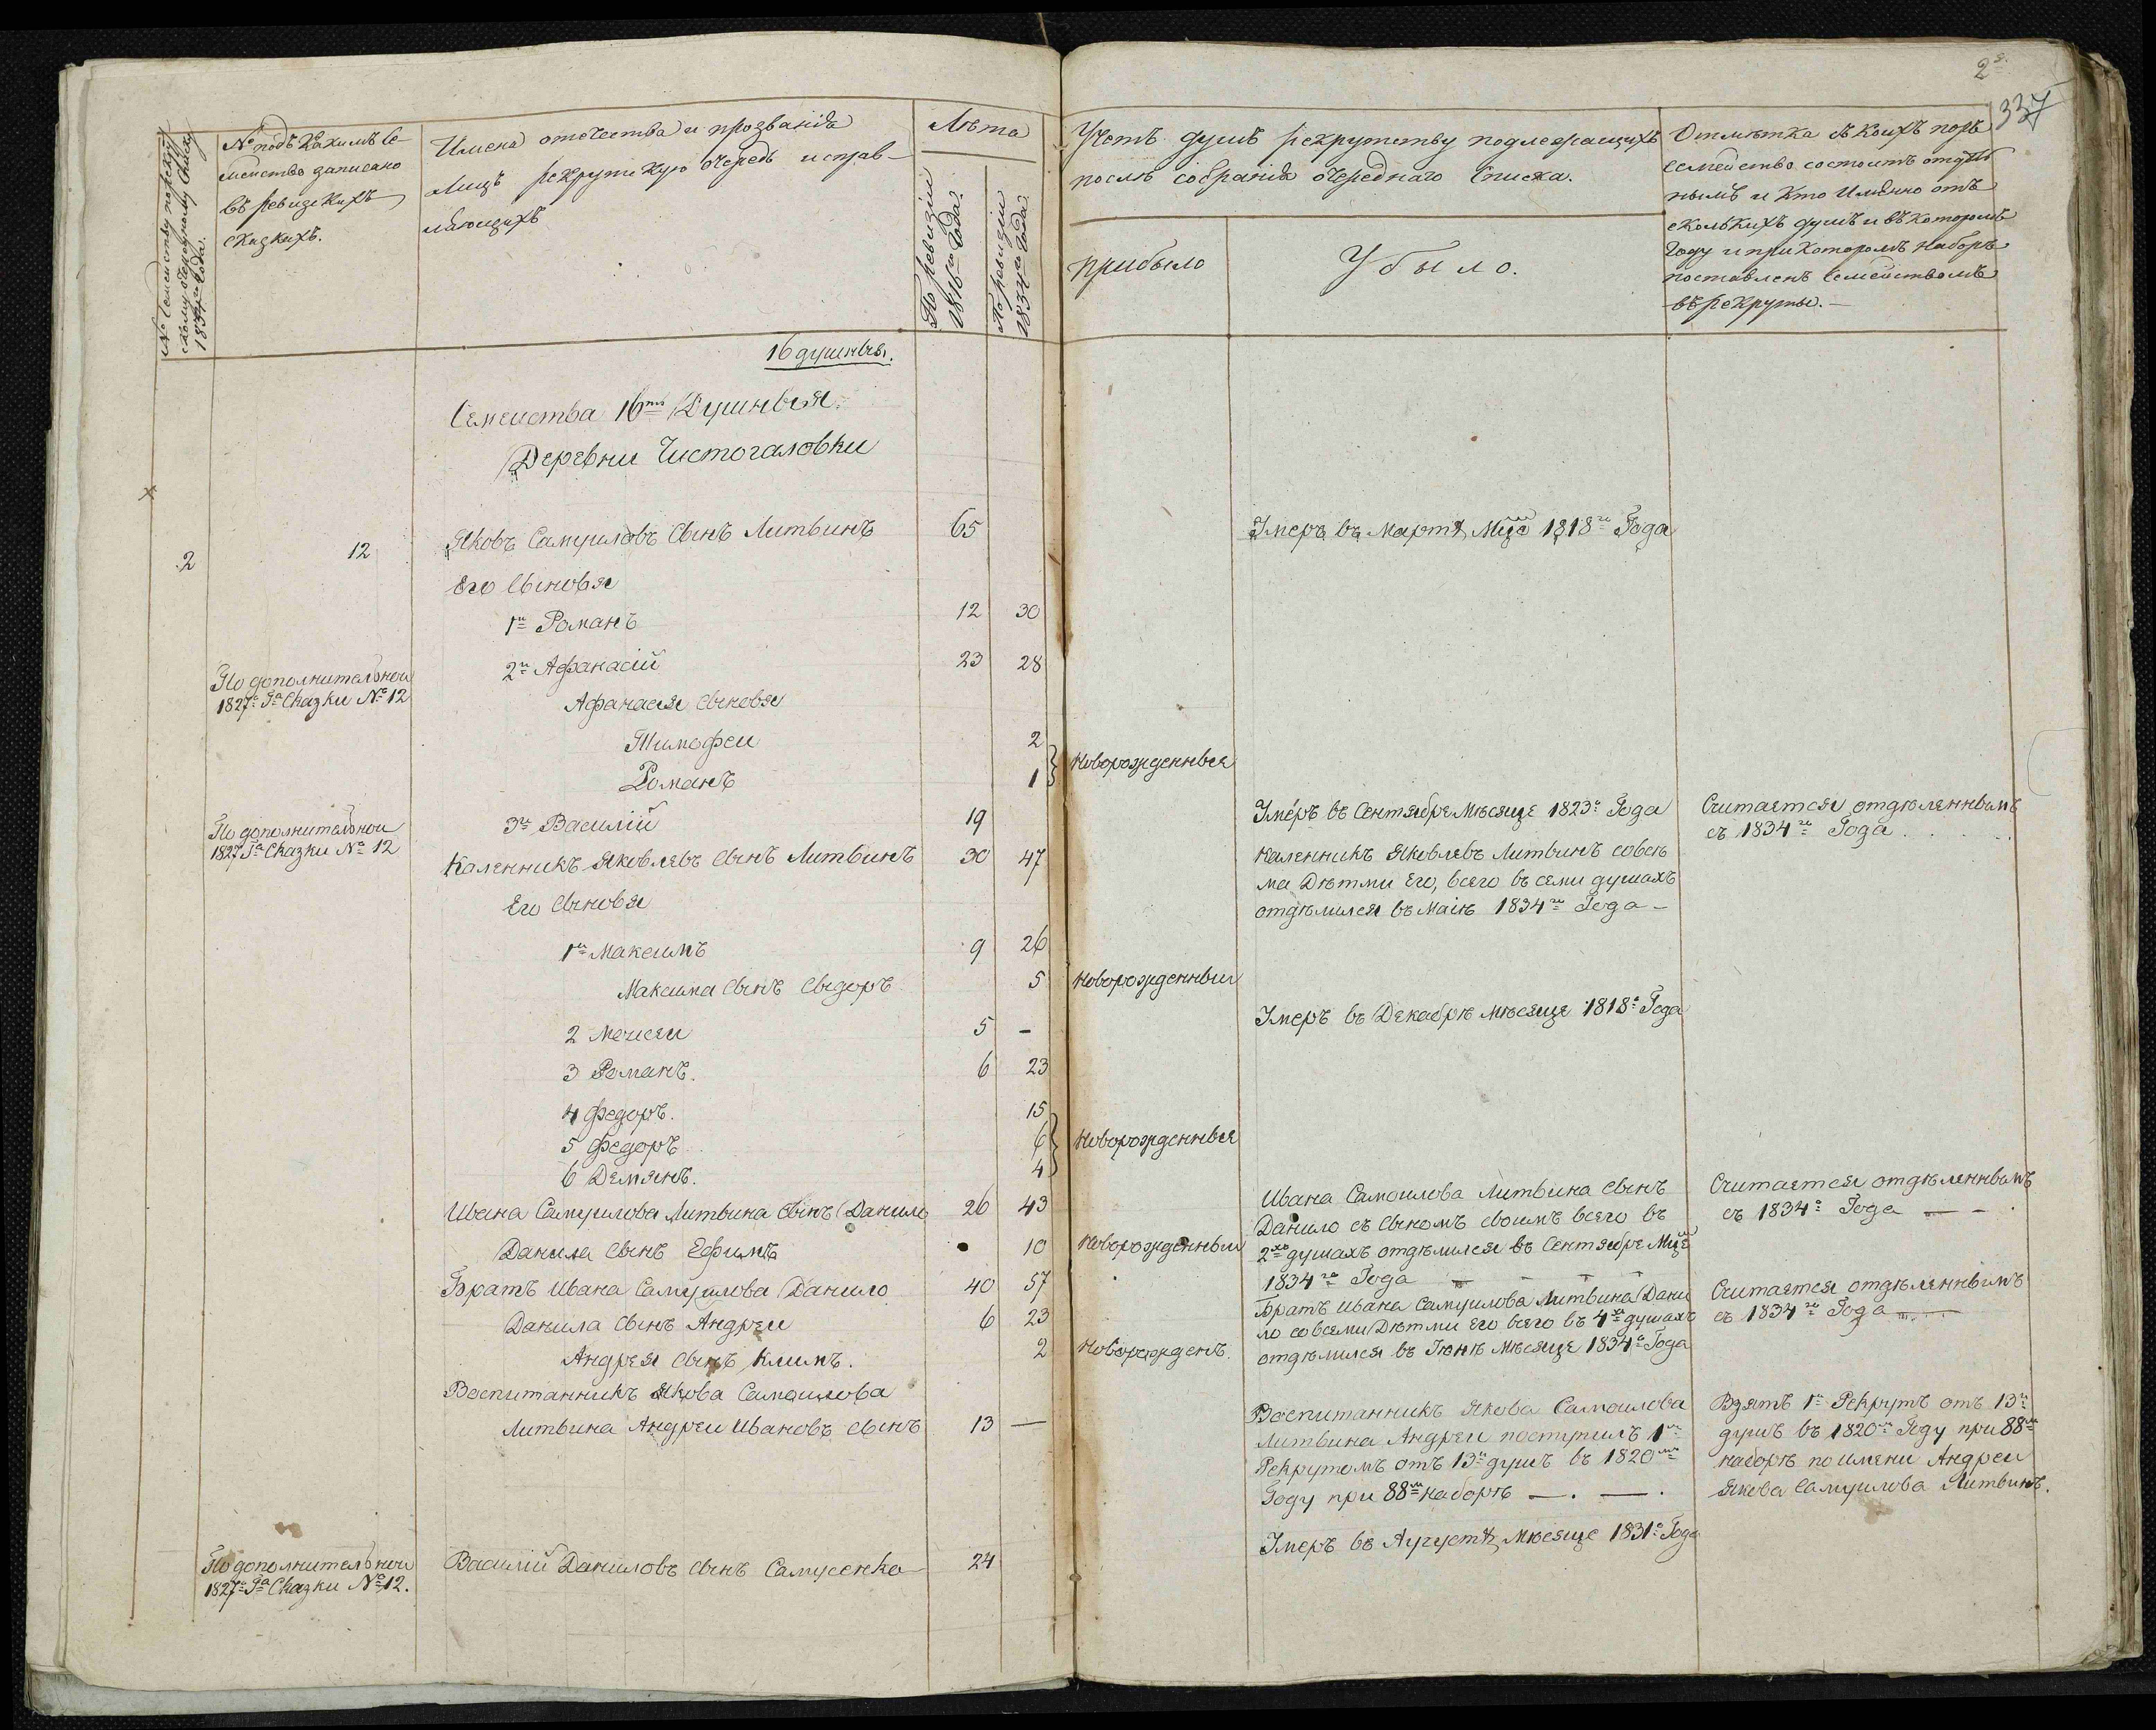 2я.
337
№ Семейству по рекрут
скому очередному Списку
1834го Года.
№ подъ Какимъ Се
мейство записано
въ ревизскихъ
сказкахъ.
Имена отечества и прозванія
Лицъ рекрутскую очередь исправ-
ляющихъ
Лѣта
По ревизіи
1816го Года.
По ревизіи
1834го Года.
Учетъ душъ рекрутству подлежащихъ
послѣ собранія очереднаго Списка.
прибыло
Убыло.
Отмѣтка съ коихъ поръ
Семейство состоитъ отдѣл
нымъ и Кто Именно отъ
сколькихъ душъ и въ которомъ
Году и при Которомъ Наборѣ
поставленъ Семействомъ
въ рекруты.—
16 душныя.
Семейства 16ти Душныя.
Деревни Чистогаловки
2
12
Яковъ Самуиловъ Сынъ Литвинъ 65
Умеръ въ Мартѣ Мцѣ 1818го Года
Его Сыновя
1й Романъ 12 30
По дополнительной
1827го Га Сказки № 12
2й Афанасій 23 28
Афанасія Сыновя
Тимофеи 2
Романъ 1
Новорожденныя
По дополнительной
1827 Га Сказки № 12
3й Василій 19
Умеръ въ Сентябре Мѣсяце 1823го Года
Считается отдѣленнымъ
съ 1834го Года
Каленникъ Яковлевъ Сынъ Литвинъ 30 47
Каленникъ Яковлевъ Литвинъ совсѣ
ми Дѣтми Его, всего въ семи душахъ
отдѣлился въ Маіѣ 1834го Года —
Его Сыновя
1й Максимъ 9 26
Максима Сынъ Сыдоръ 5
Новорожденныи
2 Моисеи 5 —
Умеръ въ Декабрѣ Мѣсяце 1818го Года
3 Романъ. 6 23
4 Федоръ. 15
5 Федоръ 6
6 Демянъ. 4
Новорожденныя
Ивана Самуилова Литвина Сынъ Данило 26 43
Ивана Самоилова Литвина Сынъ
Данило съ Сыномъ Своимъ всего въ
2хъ душахъ отдѣлился въ Сентябре Мцѣ
1834го Года
Считается отдѣленнымъ
съ 1834го Года — — .
Данила Сынъ Ефимъ 10
Новорожденныи
Братъ Ивана Самуилова Данило 40 57
Братъ Ивана Самуилова Литвина Дани
ло со всеми Дѣтми его всего въ 4хъ душахъ
отдѣлился въ Іюнѣ Мѣсяце 1834го Года
Считается отдѣленнымъ
съ 1834го Года
Данила Сынъ Андреи 6 23
Андрея Сынъ Климъ. 2
Новорожденъ.
Воспитанникъ Якова Самоилова
Литвина Андреи Ивановъ Сынъ 13 —
Воспитанникъ Якова Самоилова
Литвина Андреи поступилъ 1мъ
Рекрутомъ отъ 13ти душъ въ 1820мъ
Году при 88мъ наборѣ — . — .
Взятъ 1й Рекрутъ отъ 13ти
душъ въ 1820мъ Году при 88мъ
наборѣ по имени Андреи
Якова Самуилова Литвинъ.
По дополнительной
1827го Га Сказки № 12.
Василій Даниловъ Сынъ Самусенко 24
Умеръ въ Аугустѣ Мѣсяце 1831го Года